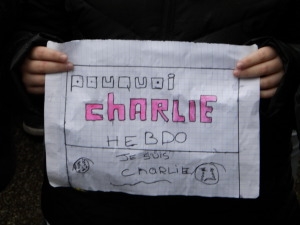 POUQUOI
CHARLIE
HEBDO
JE SUIS
CHARLIE